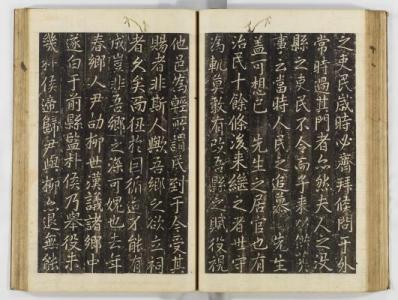 之吏民歲時必齋拜候問于外
常時過其門者亦然夫人之沒
縣之吏民不令而子來
事云當時人民之追慕 先生
蓋可想已 先生之居官也有
治民十餘條後來繼之者世守
為軌莫敢有改吾縣之賦役視
他邑為輕所謂民到于今受其
賜者非斯人歟吾鄉之欲立祠
者久矣而因循能有
成豈非吾鄉之深可愧也去年
春鄉人尹劼柳世漢議諸鄉中
遂白于前縣監朴侯乃舉役未
幾朴侯遞歸尹與柳亦退無能